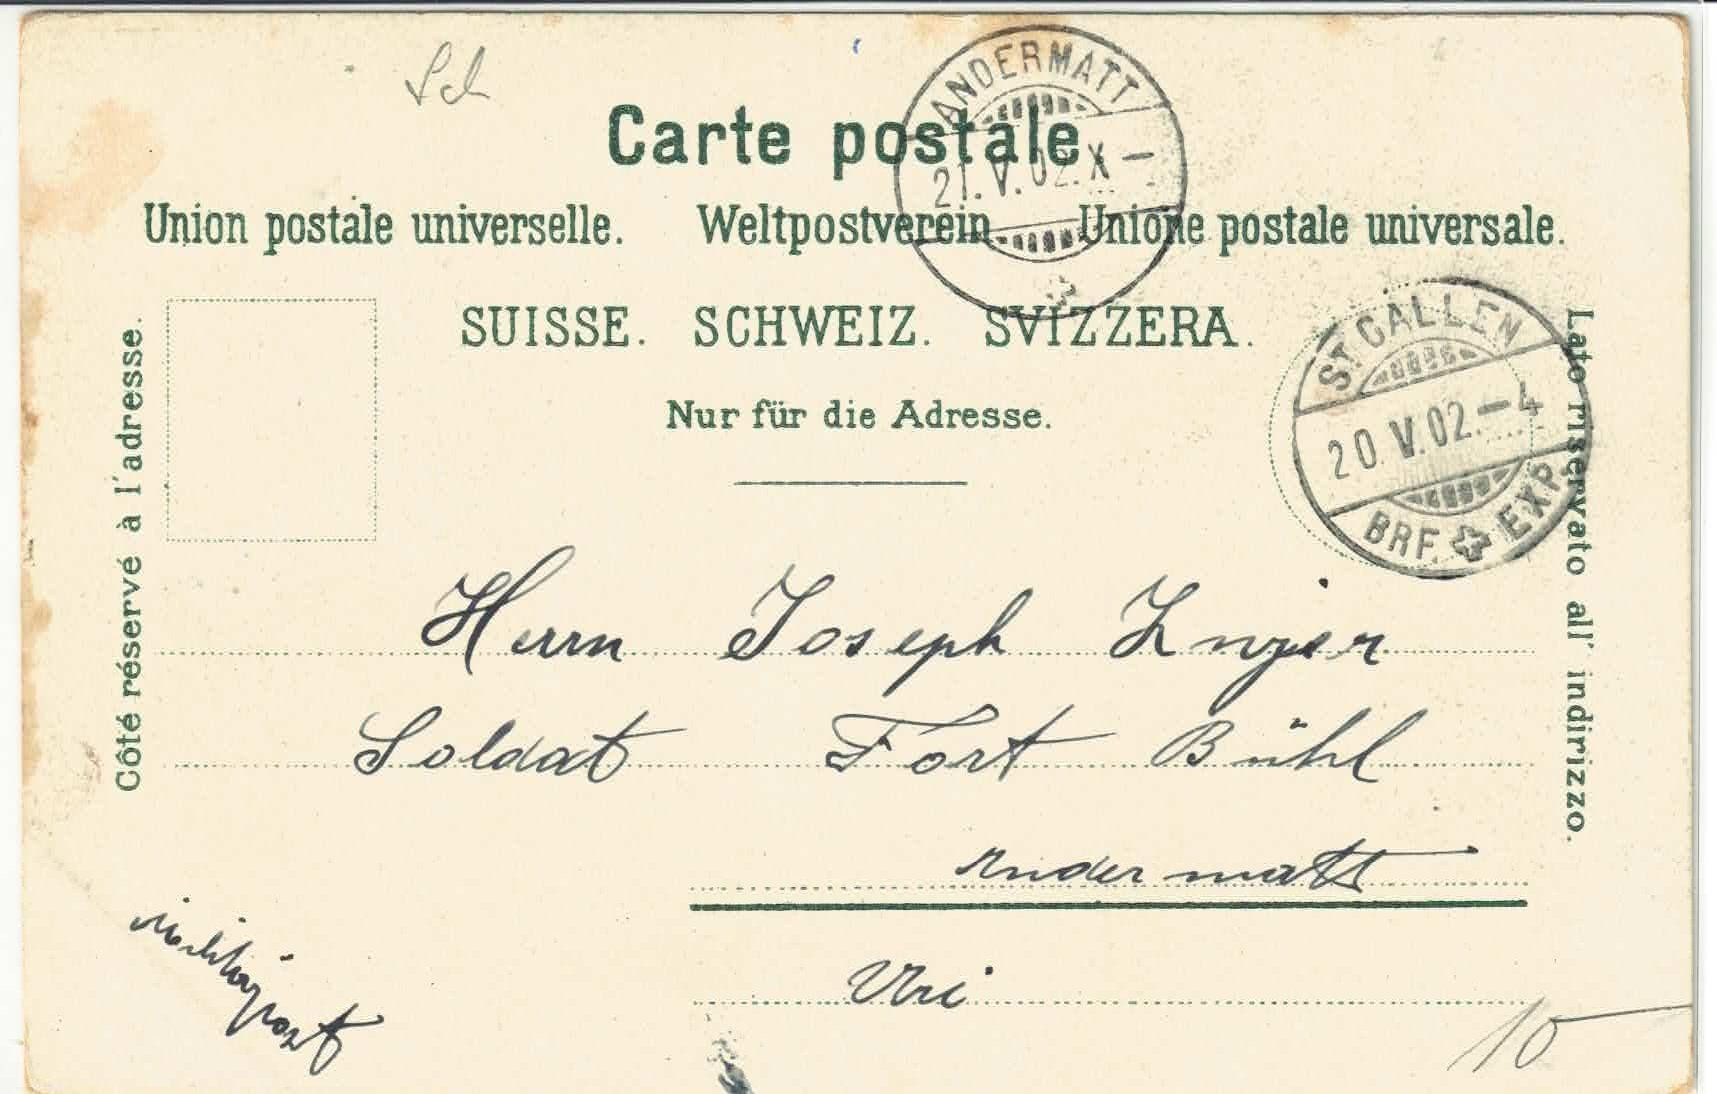 Sch
Carte postale
Union postale universelle. Weltpostverein Unione postale universale.
SUISSE. SCHWEIZ. SVIZZERA.
Nur für die Adresse.
Côté réservé à l'adresse.
Lato riservato all' indirizzo.
ANDERMATT
21.V.02.X –
ST. GALLEN
20.V.02.–4
BRF. EXP.
Herrn Joseph
Soldat Fort Bühl
Andermatt
Uri
Militärpost
10